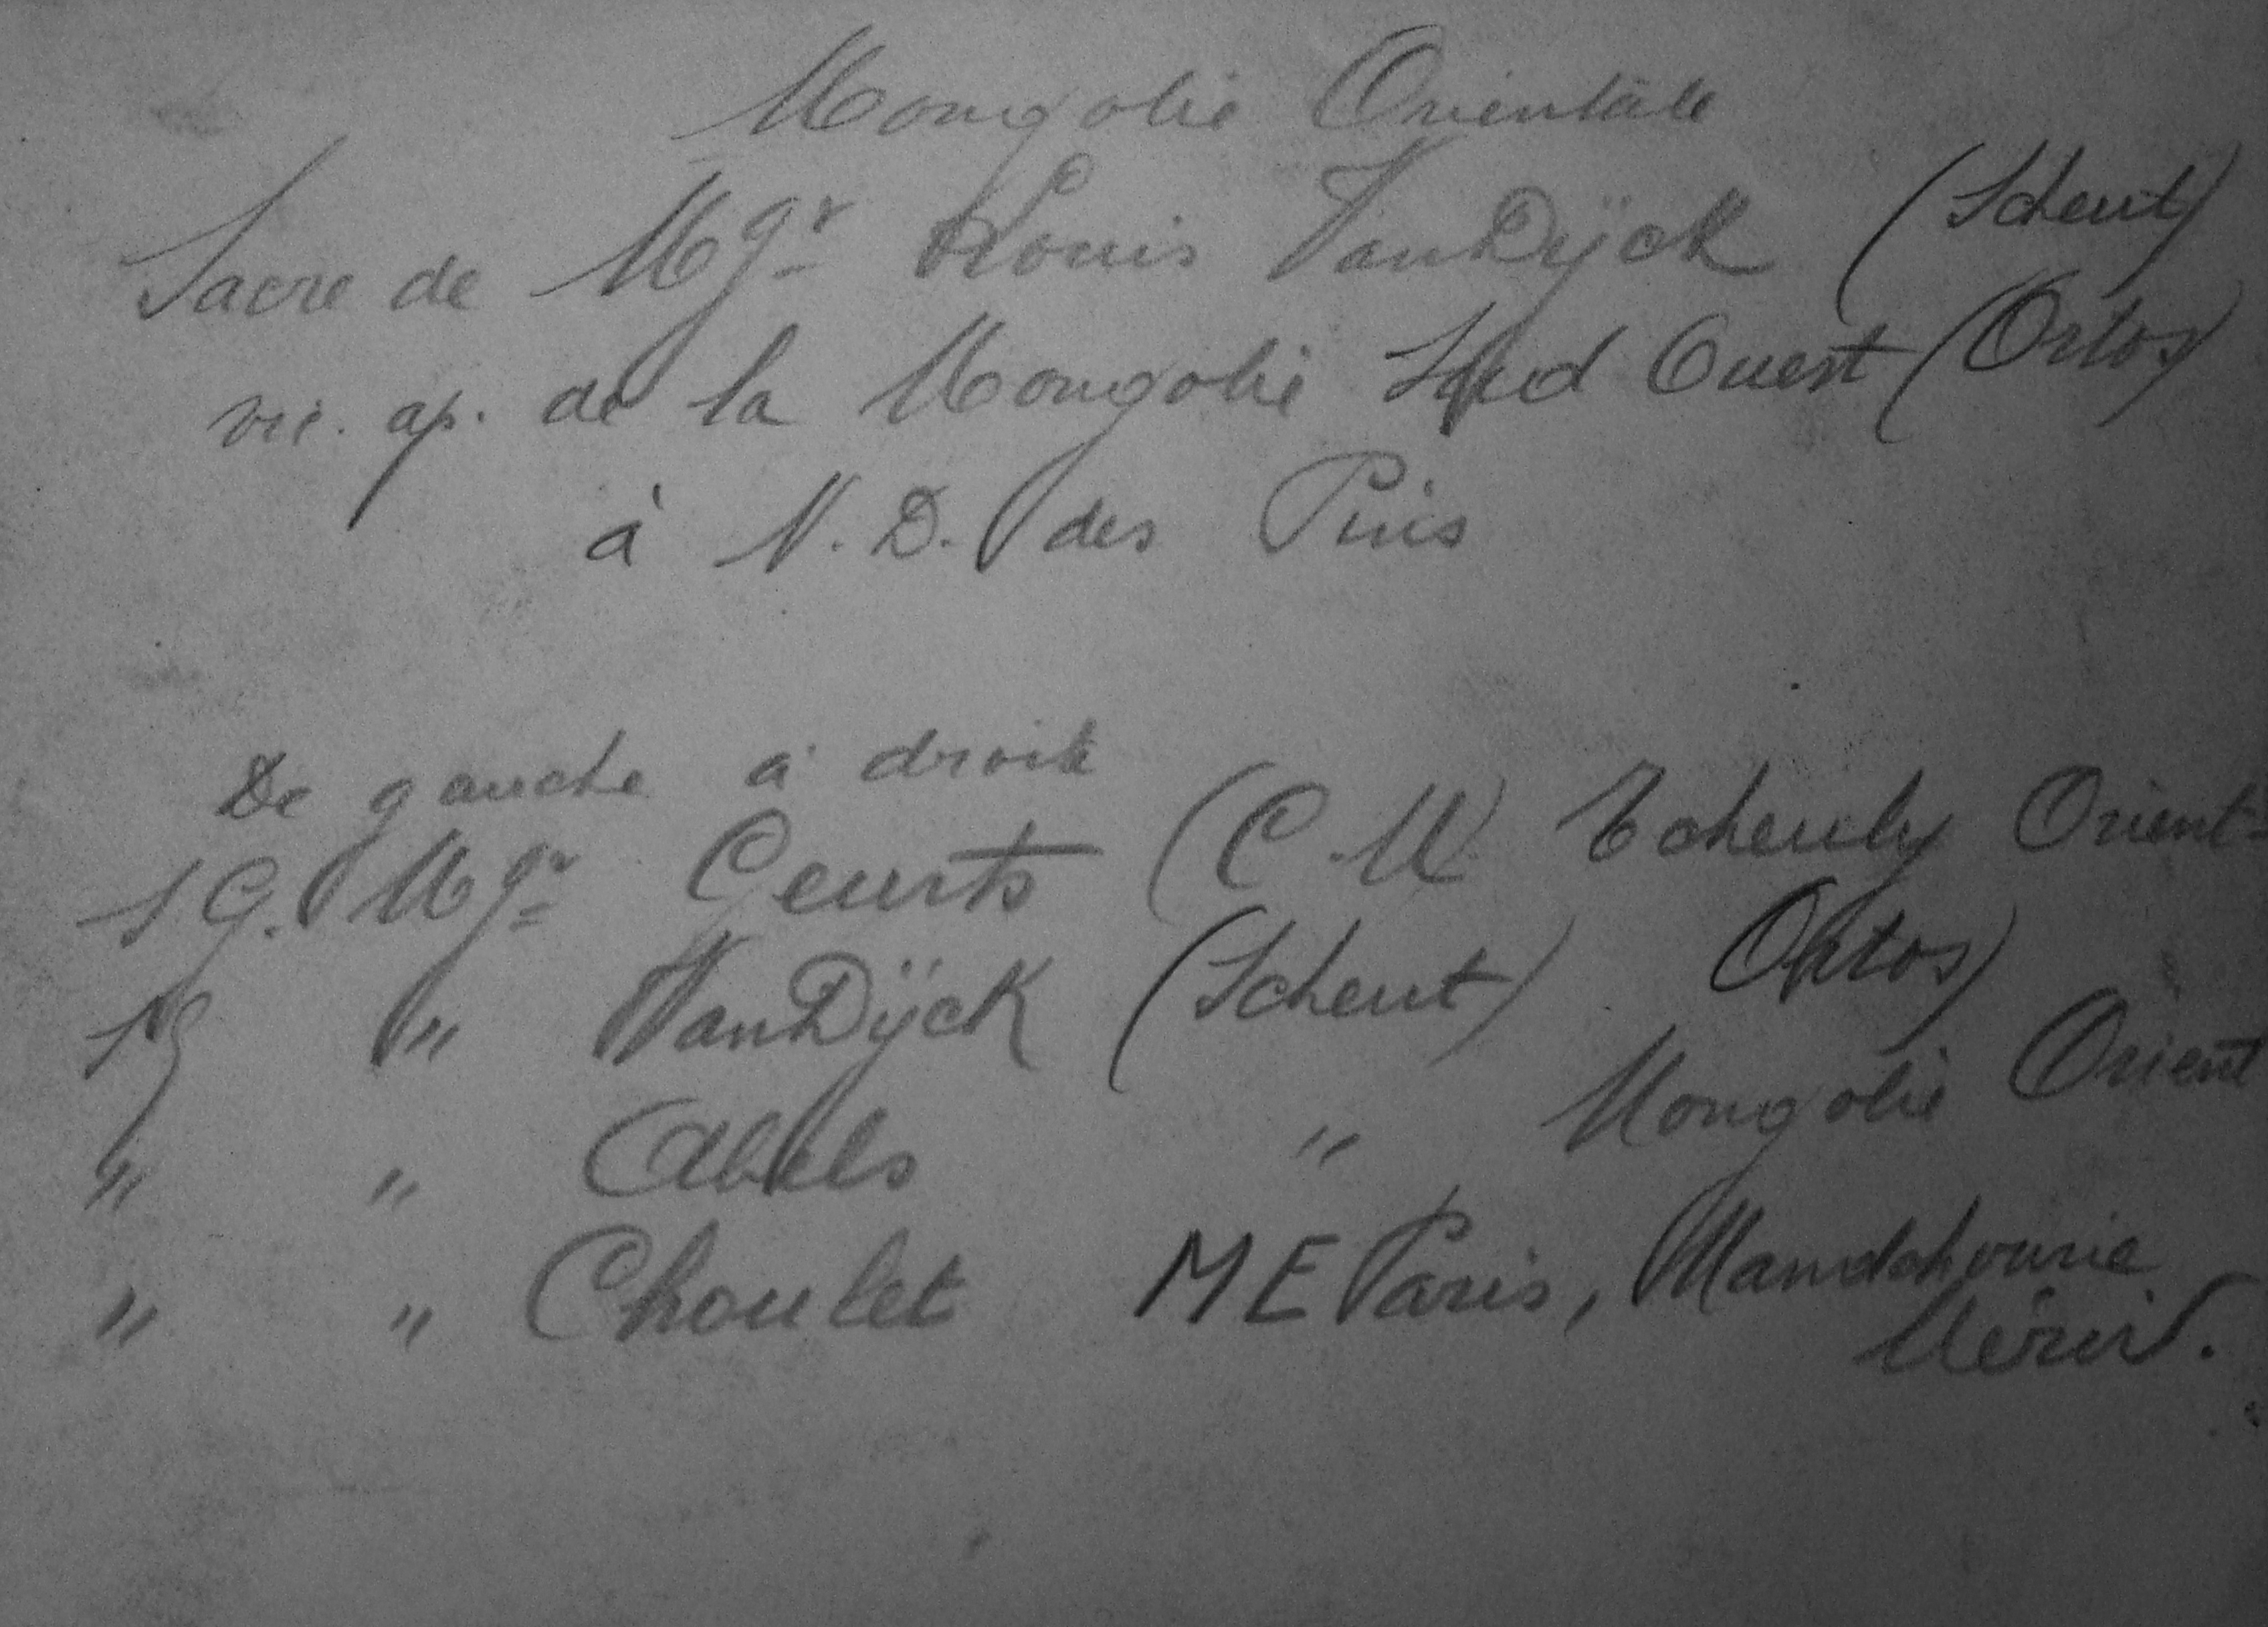 Mongolie Orientale
Sacre de Mgr Louis VanDÿck (Scheut)
vic. ap. de la Mongolie Sud Ouest (Ortos)
à N. D. des Pins
De gauche à droite
S G. Mgr Geurts (C. M) Tcheuly Orient
S G " VanDÿck (Scheut) Ortos)
" " Abels " Mongolie Orient
" " Choulet M E Paris, Mandchourie
Mérid.